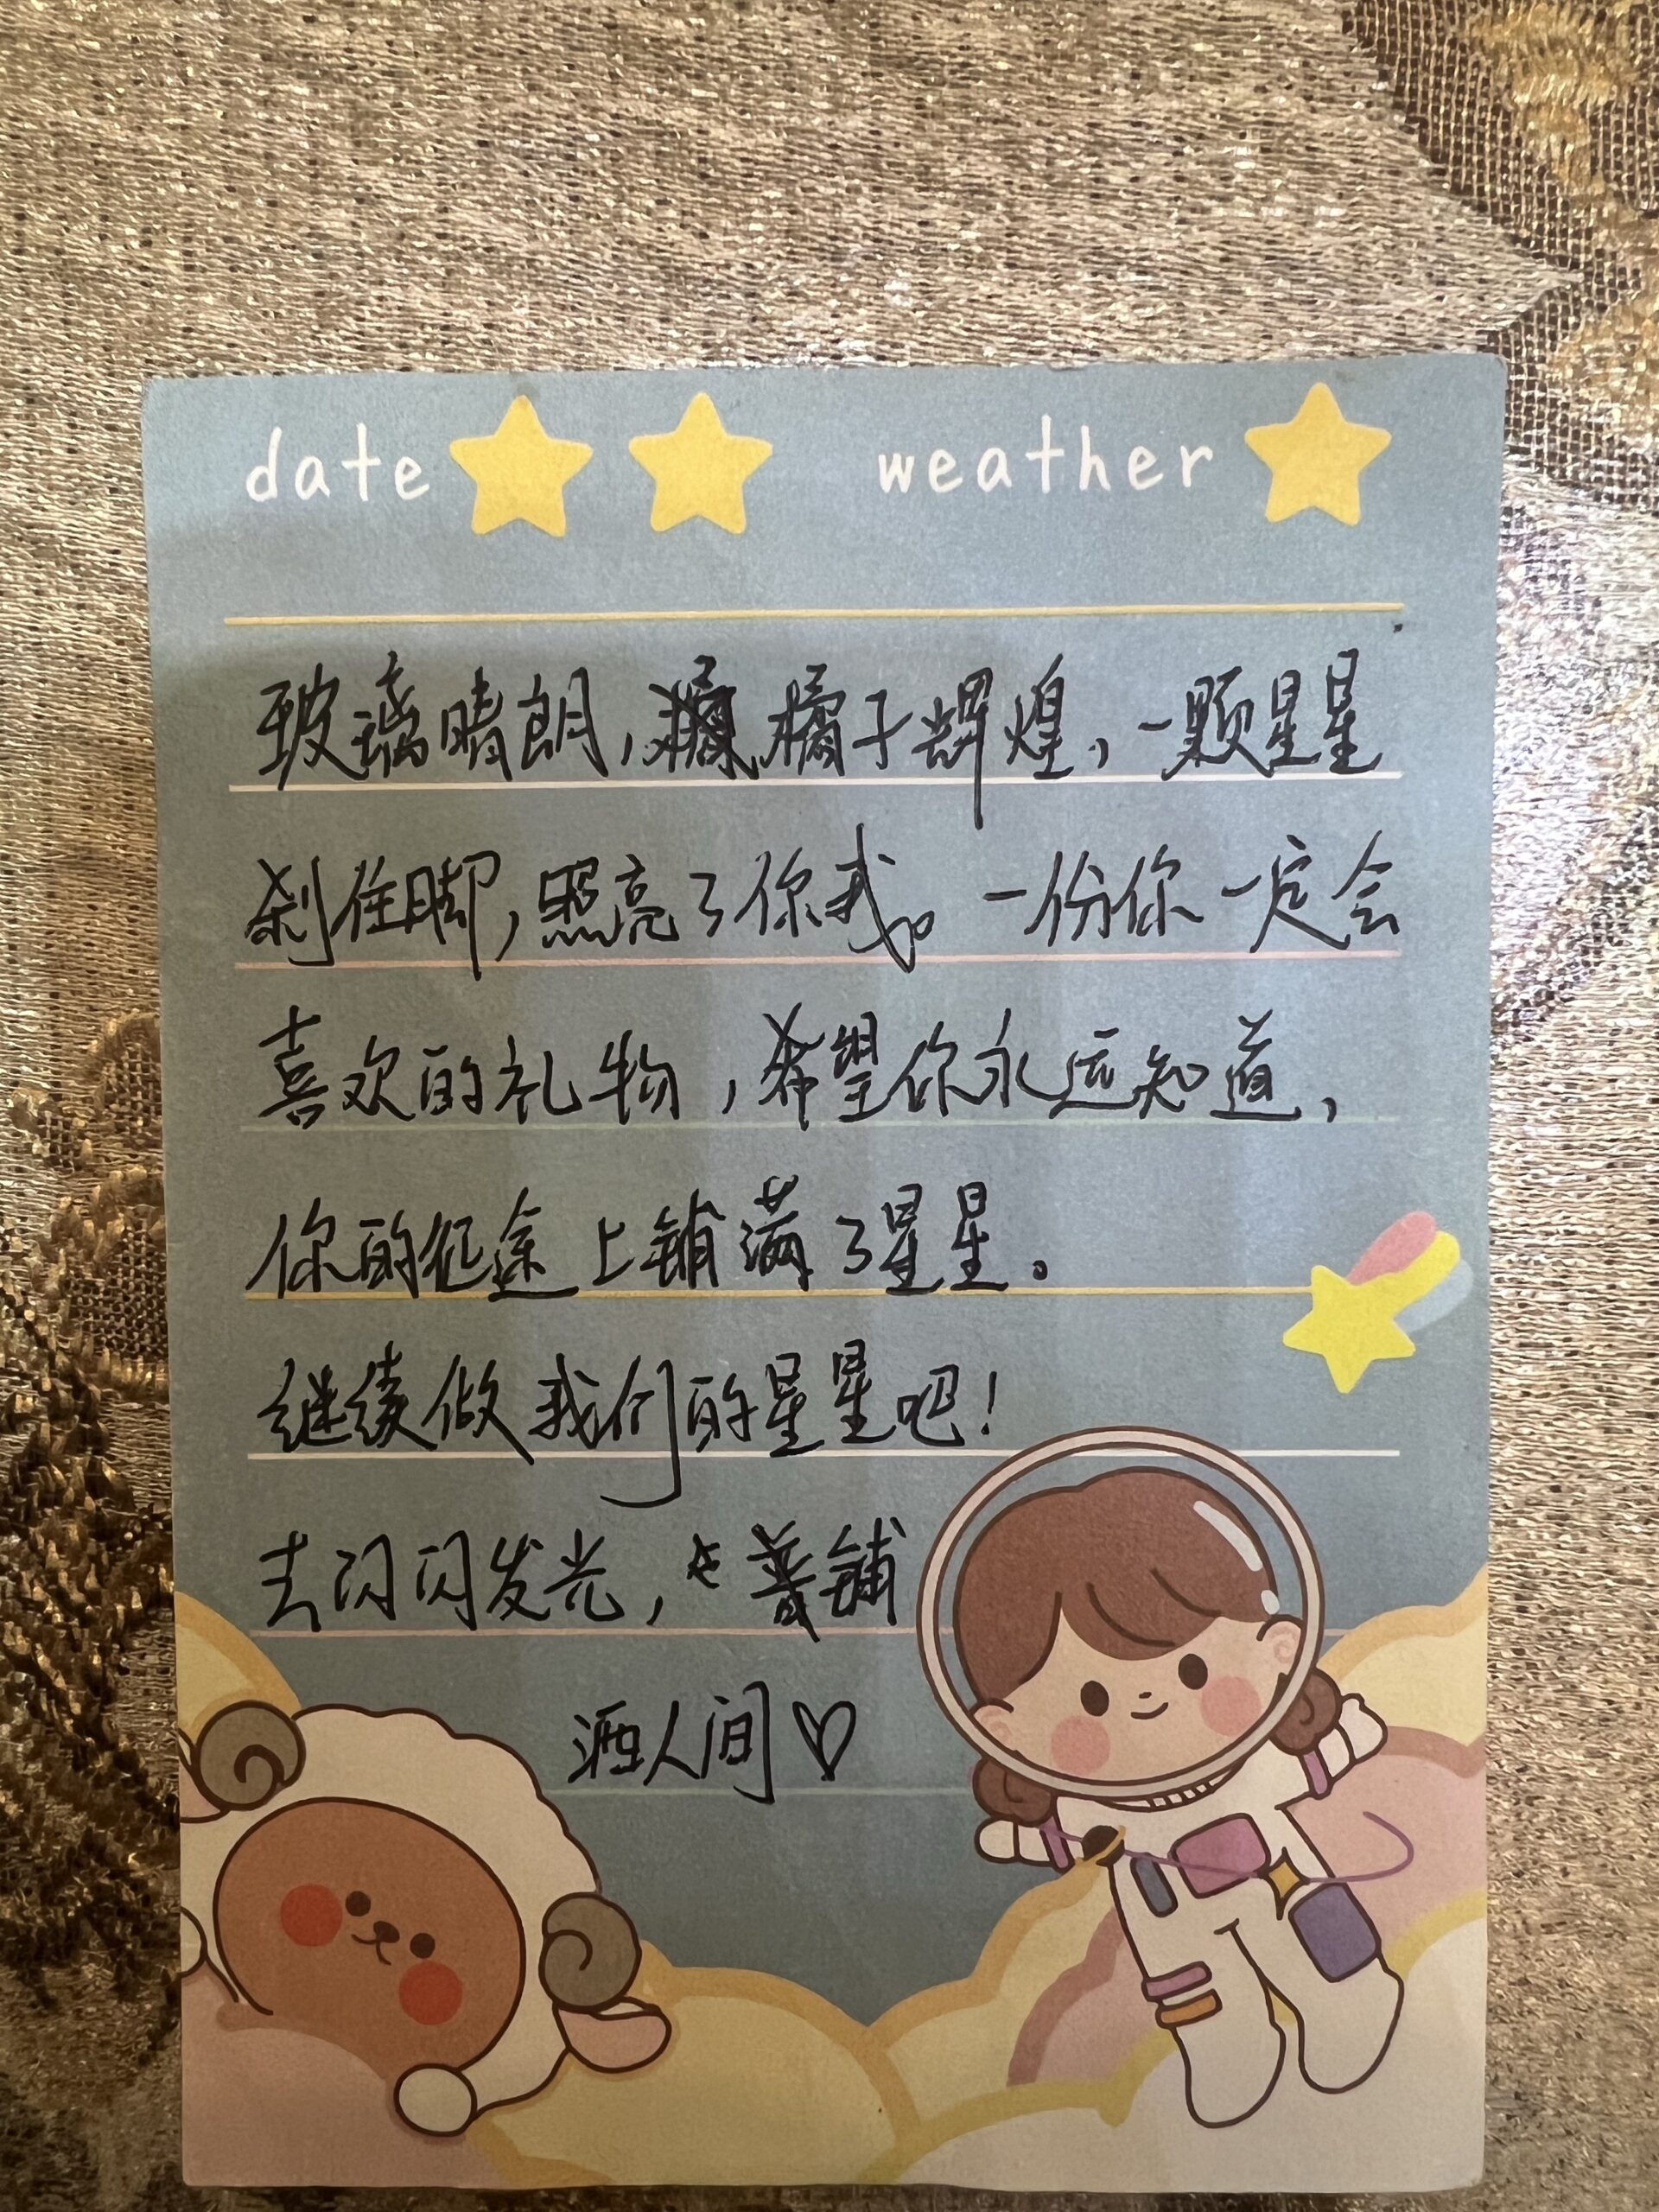 date weather
玻璃晴朗，橘子辉煌，一颗星星
刹住脚，照亮了你我。一份你一定会
喜欢的礼物，希望你永远知道，
你的征途上铺满了星星。
继续做我们的星星吧！
去闪闪发光，去普铺
洒人间♡